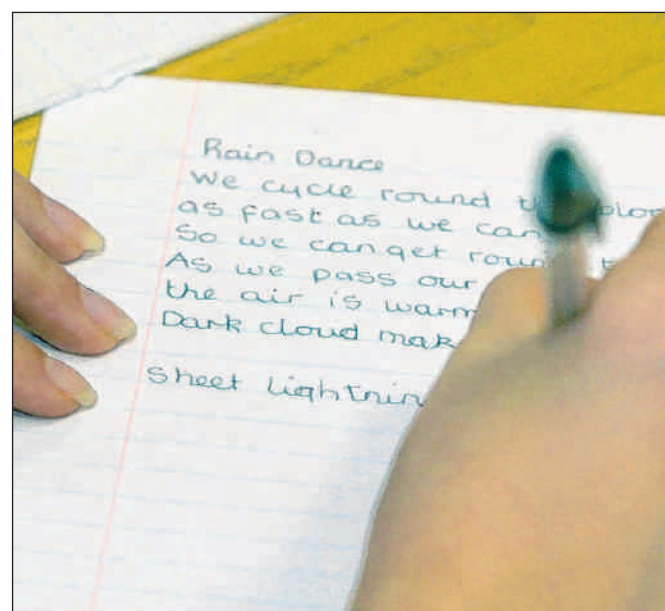 Rain Dance
We cycle round
as fast as we can
So we can get round
As we pass our
the air is warm
Dark cloud
Sheet